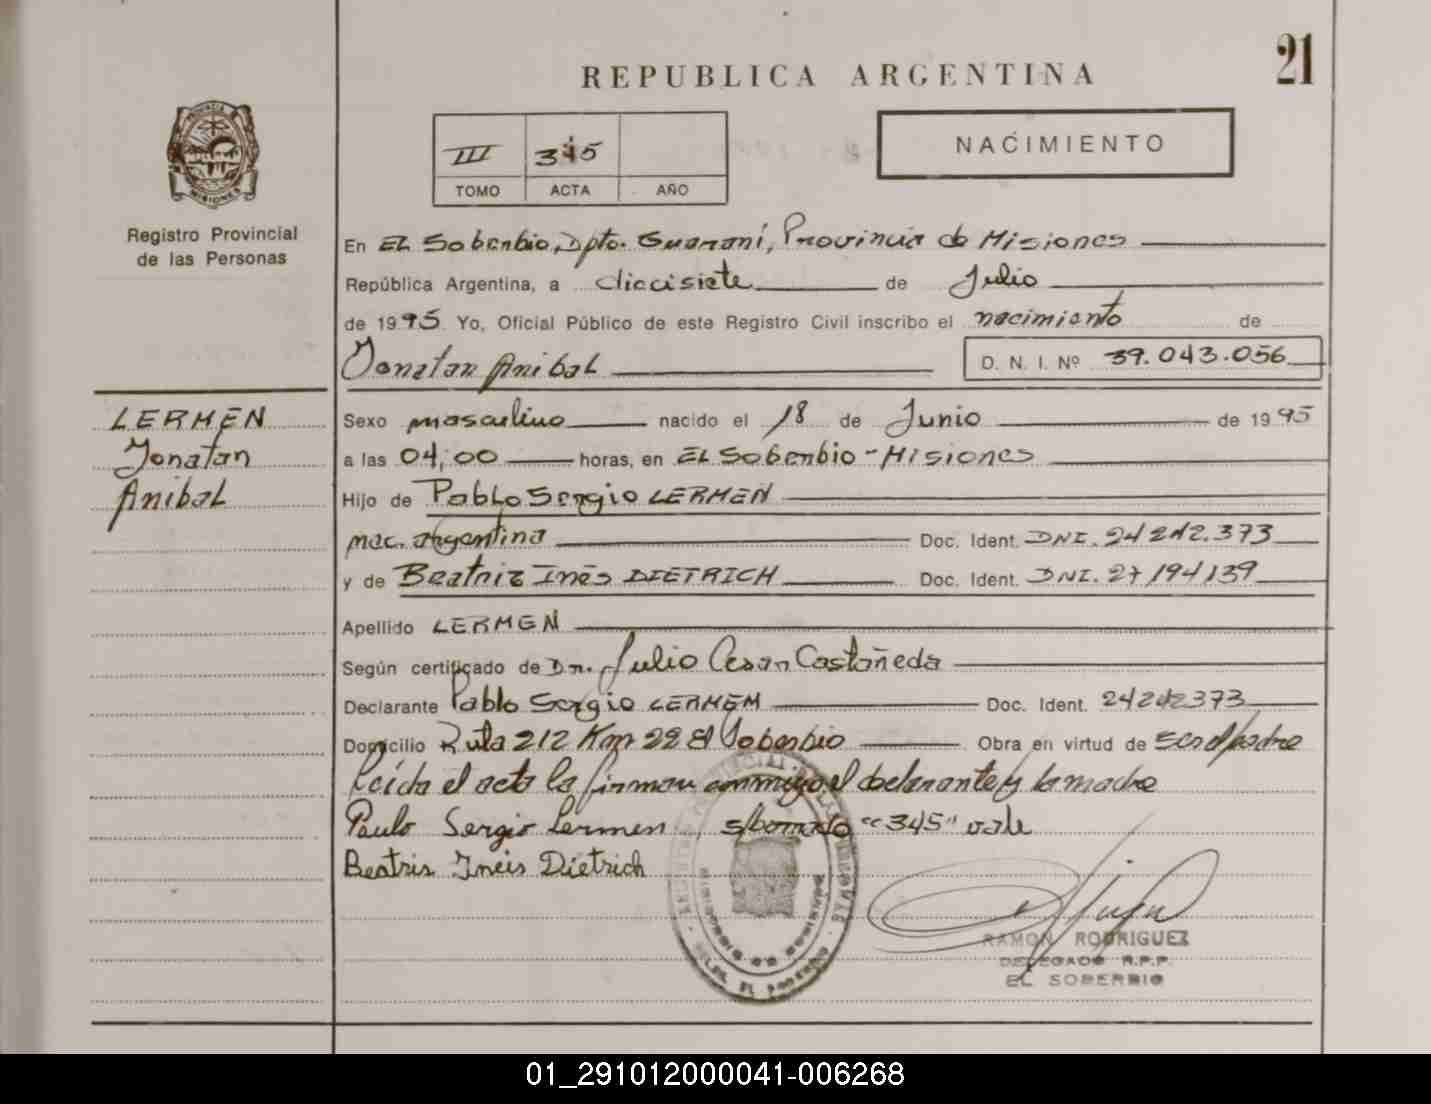 21
REPUBLICA ARGENTINA
III 345
TOMO ACTA AÑO
NACIMIENTO
PROVINCIA
MISIONES
Registro Provincial
de las Personas
En EL Soberbio, Dpto. Guaraní, Provincia de Misiones
República Argentina, a diecisiete de Julio
de 1995 Yo, Oficial Público de este Registro Civil inscribo el nacimiento de
Jonatan Anibal D. N. I. Nº 39.043.056
LERMEN
Jonatan
Anibal
Sexo masculino nacido el 18 de Junio de 1995
a las 04,00 horas, en EL Soberbio - Misiones
Hijo de Pablo Sergio LERMEN
nac. argentina Doc. Ident. DNI. 24 242.373
y de Beatriz Inés DIETRICH Doc. Ident. DNI. 27/194/139
Apellido LERMEN
Según certificado de Dr. Julio Cesar Castañeda
Declarante Pablo Sergio LERMEM Doc. Ident. 24242373
Domicilio Ruta 212 Km 22 El Soberbio Obra en virtud de ser el padre
Leída el acta la firman conmigo el declarante y la madre
Paulo Sergio Lermen s/borrado "345" vale
Beatris Ineis Dietrich
RAMON RODRIGUEZ
DELEGADO R.P.P.
EL SOBERBIO
01_291012000041-006268